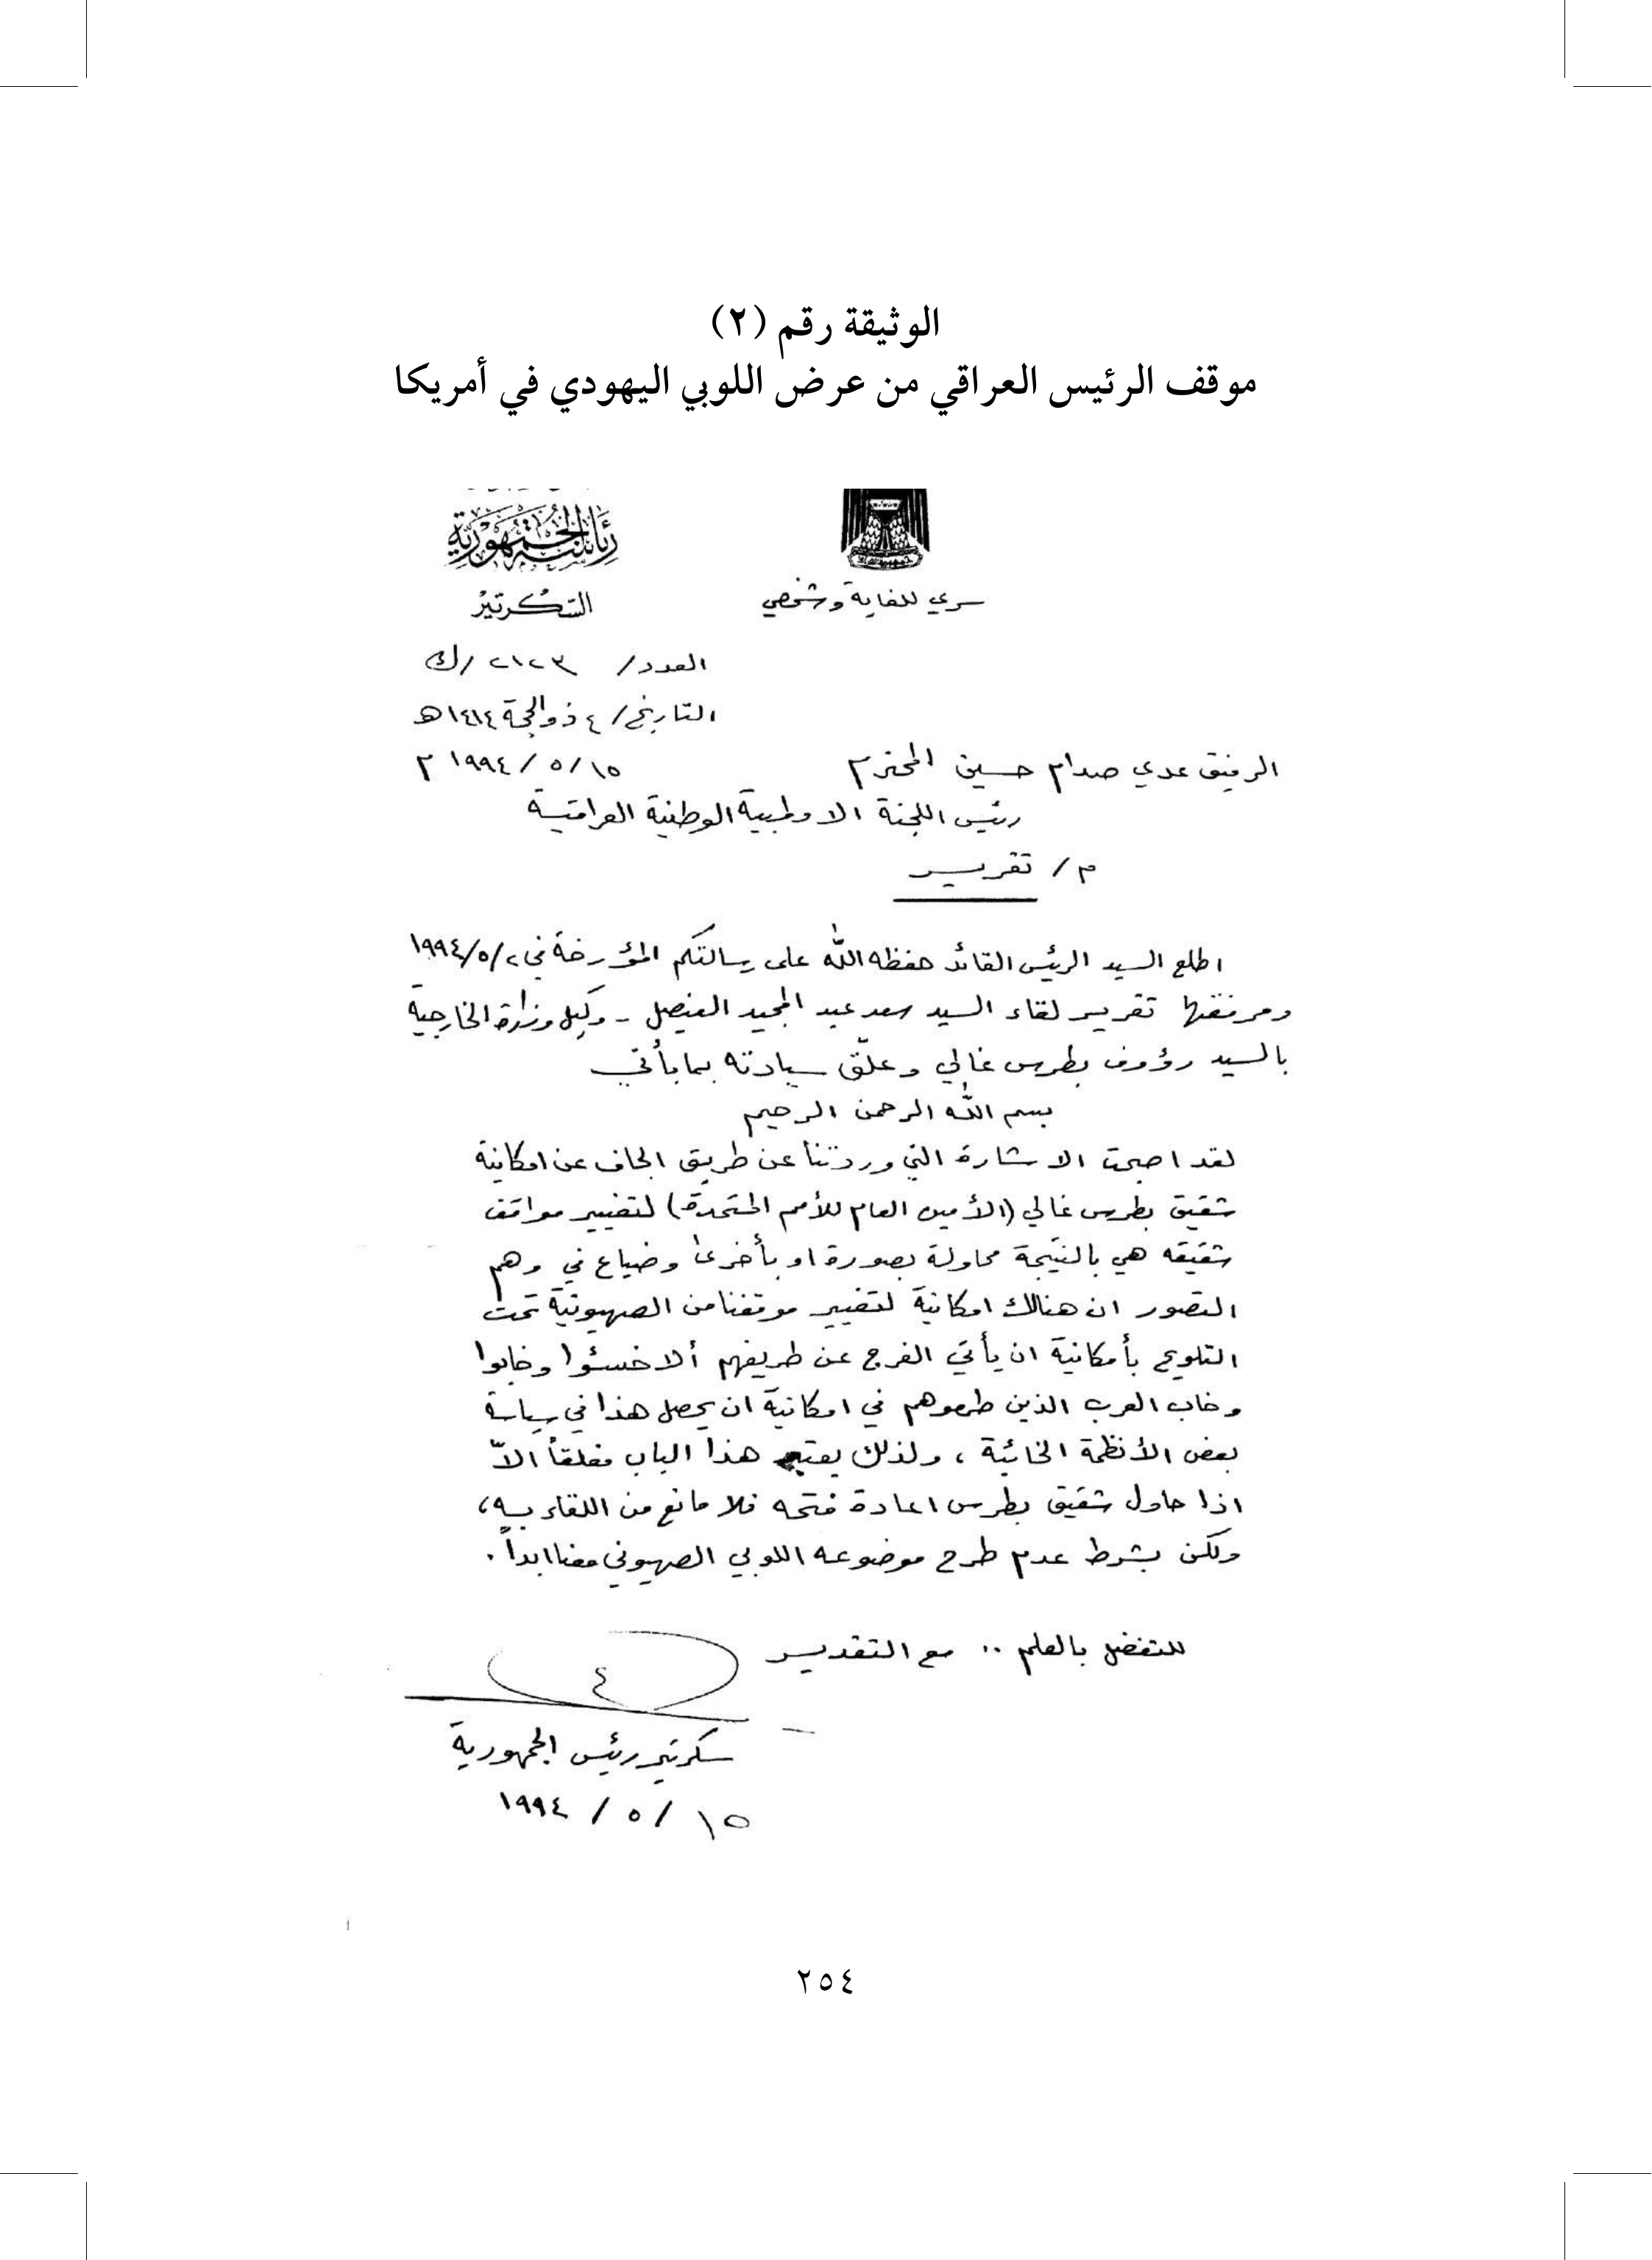 الوثيقة رقم (٢)
موقف الرئيس العراقي من عرض اللوبي اليهودي في أمريكا
رئاسة الجمهورية
السكرتير
سري للغاية وشخصي
العدد/ ٢١٢٣/ك
التاريخ/ ٤ ذو الحجة ١٤١٤هـ
١٥/٥/١٩٩٤ م
الرفيق عدي صدام حسين المحترم
رئيس اللجنة الاولمبية الوطنية العراقية
م/ تقرير
اطلع السيد الرئيس القائد حفظه الله على رسالتكم المؤرخة في ٢/٥/١٩٩٤
ومرفقها تقرير لقاء السيد سعد عبد المجيد الفيصل - وكيل وزارة الخارجية
بالسيد رؤوف بطرس غالي وعلّق سيادته بما يأتي
بسم الله الرحمن الرحيم
لقد اصبحت الاشارة التي وردتنا عن طريق الجاف عن امكانية
شقيق بطرس غالي (الأمين العام للأمم المتحدة) لتغيير مواقف
شقيقه هي بالنتيجة محاولة بصورة او بأخرى وضياع في وهم
التصور ان هنالك امكانية لتغيير موقفنا من الصهيونية تحت
التلويح بأمكانية ان يأتي الفرج عن طريقهم ألا خسئوا وخابوا
وخاب العرب الذين طمعوهم في امكانية ان يحصل هذا في سياسة
بعض الأنظمة الخائبة ، ولذلك يعتبر هذا الباب مغلقاً الاّ
اذا حاول شقيق بطرس اعادة فتحه فلا مانع من اللقاء به،
ولكن بشرط عدم طرح موضوعه اللوبي الصهيوني معنا ابداً .
للتفضل بالعلم .. مع التقدير
سكرتير رئيس الجمهورية
١٥/٥/١٩٩٤
٢٥٤